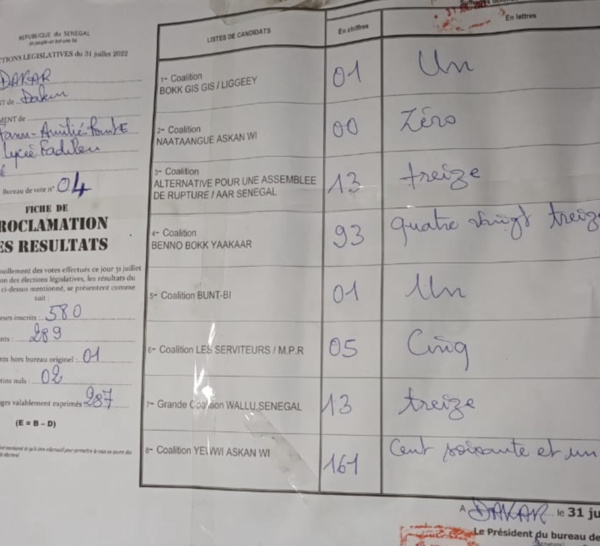 REPUBLIQUE du SENEGAL
un peuple-un but-une foi
CTIONS LEGISLATIVES du 31 juillet 2022
DAKAR
de Dakar
MENT de
Lycée
Bureau de vote n° 04
FICHE DE
ROCLAMATION
ES RESULTATS
ouillement des votes effectués ce jour 31 juillet
on des élections législatives, les résultats du
ci-dessus mentionné, se présentent comme
suit :
inscrits : 580
289
hors bureau originel : 01
tins nuls : 02
ges valablement exprimés 287
(E = B – D)
LISTES DE CANDIDATS
En chiffres
En lettres
1- Coalition
BOKK GIS GIS / LIGGEEY
01
Un
2- Coalition
NAATAANGUE ASKAN WI
00
Zéro
3- Coalition
ALTERNATIVE POUR UNE ASSEMBLEE
DE RUPTURE / AAR SENEGAL
13
treize
4- Coalition
BENNO BOKK YAAKAAR
93
quatre vingt treize
5- Coalition BUNT-BI
01
Un
6- Coalition LES SERVITEURS / M.P.R
05
Cinq
7- Grande Coalition WALLU SENEGAL
13
treize
8- Coalition YEWWI ASKAN WI
161
Cent soixante et un
A DAKAR le 31 ju
Le Président du bureau de